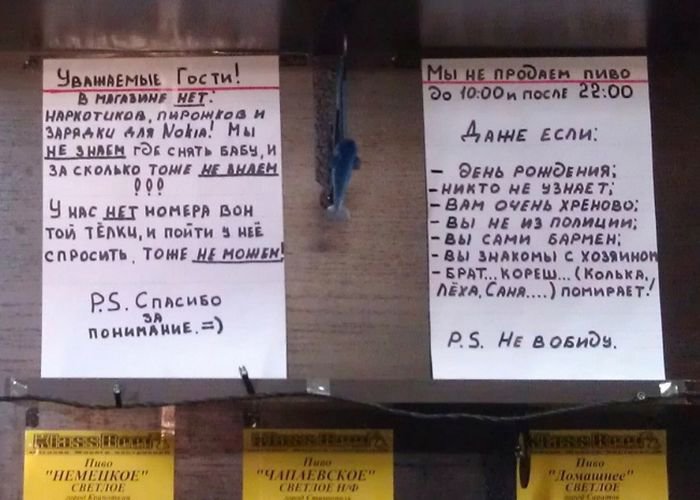 Уважаемые Гости!
В магазине нет:
наркотиков, пирожков и
зарядки для Nokia! Мы
не знаем где снять бабу, и
за сколько тоже не знаем
!!!
У нас нет номера вон
той тёлки, и пойти у неё
спросить, тоже не можем!
P.S. Спасибо
за
понимание. =)
Мы не продаем пиво
до 10:00 и после 22:00
Даже если:
- день рождения;
- никто не узнает;
- вам очень хреново;
- вы не из полиции;
- вы сами бармен;
- вы знакомы с хозяином
- брат... кореш... (Колька,
Лёха, Саня....) помирает!
P.S. Не в обиду.
KlassBeer
Пиво
"НЕМЕЦКОЕ"
СВЕТЛОЕ
KlassBeer
Пиво
"ЧАПАЕВСКОЕ"
СВЕТЛОЕ Н/Ф
KlassBeer
Пиво
"Домашнее"
СВЕТЛОЕ